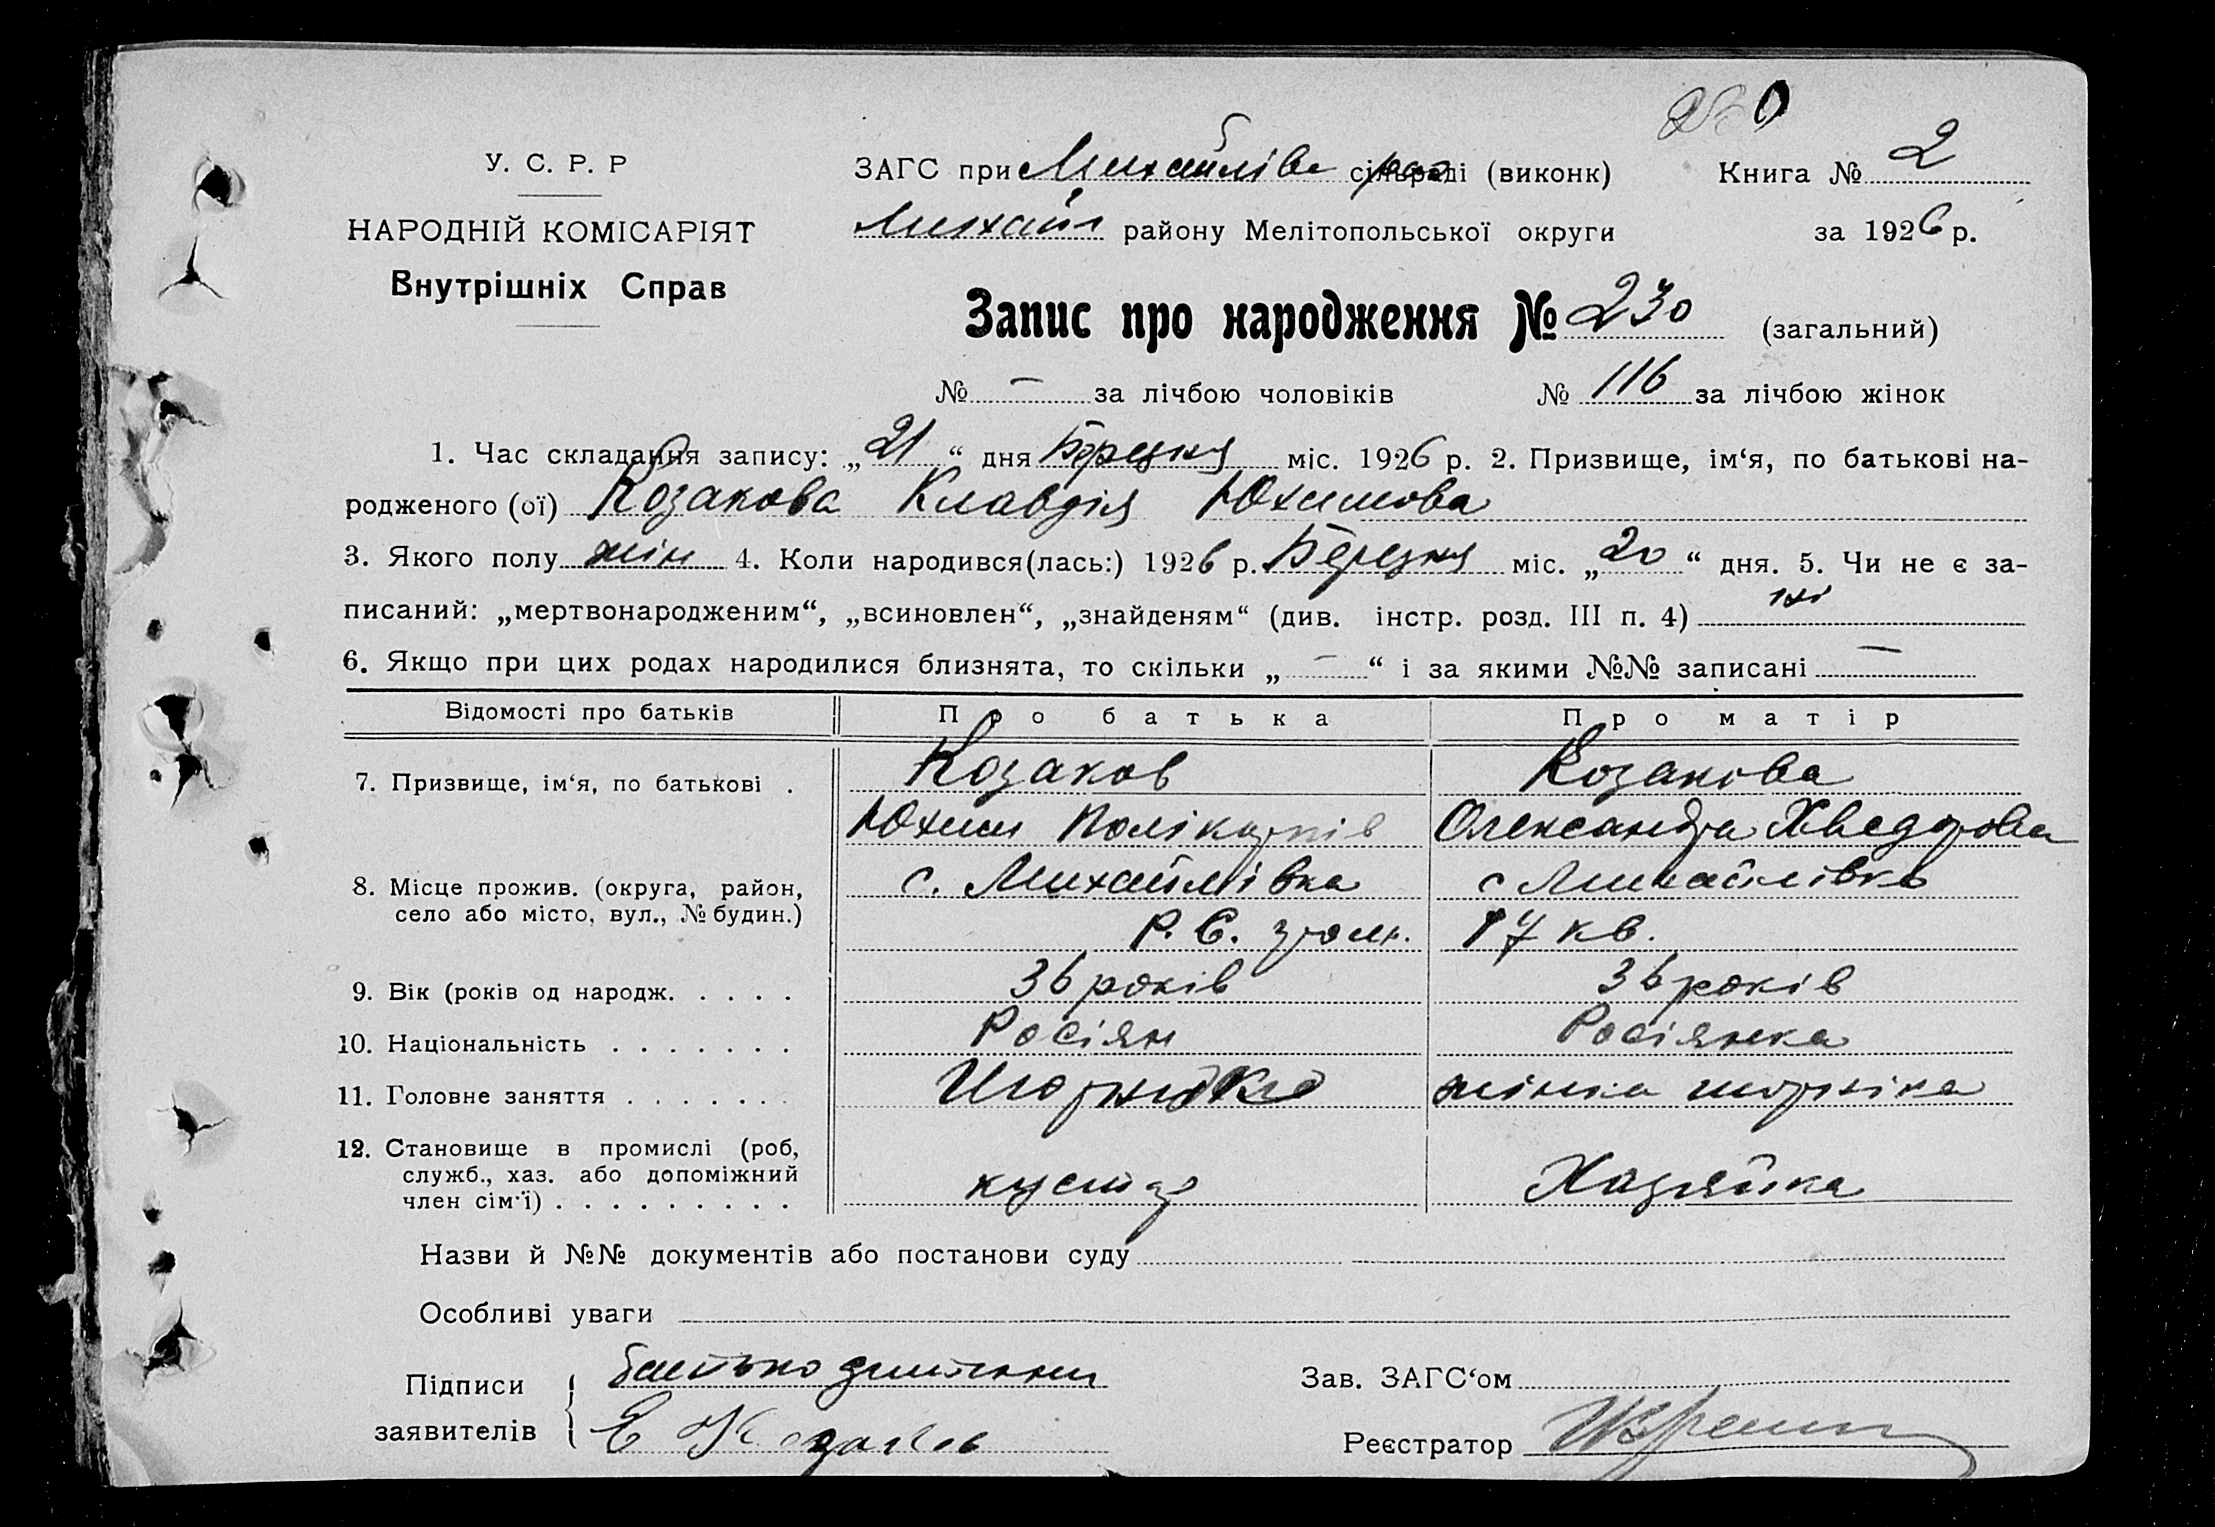 230
У. С. Р. Р
НАРОДНІЙ КОМІСАРІЯТ
Внутрішніх Справ
ЗАГС при Михайлівс сільраді (виконк) Книга № 2
Михайл району Мелітопольської округи за 1926 р.
Запис про народження № 230 (загальний)
№ — за лічбою чоловіків № 116 за лічбою жінок
1. Час складання запису: „21“ дня Березня міс. 1926 р. 2. Призвище, ім‘я, по батькові на-
родженого (ої) Козакова Клавдія Юхимова
3. Якого полу жін 4. Коли народився(лась:) 1926 р. Березня міс. „20“ дня. 5. Чи не є за-
писаний: „мертвонародженим“, „всиновлен“, „знайденям“ (див. інстр. розд. III п. 4) ні
6. Якщо при цих родах народилися близнята, то скільки „—“ і за якими №№ записані —
Відомості про батьків Про батька Про матір
7. Призвище, ім‘я, по батькові . Козаков Козакова
Юхим Полікарпів Олександра Хведорова
8. Місце прожив. (округа, район, с. Михайлівка с Михайлівка
село або місто, вул., № будин.) Р. Є. гром. 17 кв.
9. Вік (років од народж. . . . . 36 років 36 років
10. Національність . . . . . . . Росіян Росіянка
11. Головне заняття . . . . . . . жінка шорніка
12. Становище в промислі (роб,
служб., хаз. або допоміжний кустар Хазяйка
член сім‘ї) . . . . . . . . .
Назви й №№ документів або постанови суду
Особливі уваги
Підписи батько дитини Зав. ЗАГС‘ом
заявителів Е Козаков Реєстратор